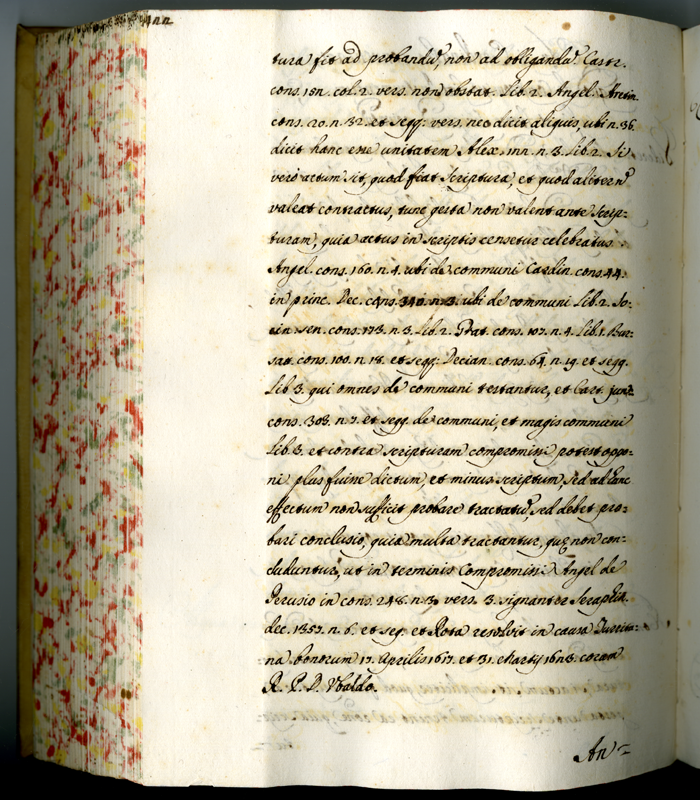 tura fit ad probandũ, non ad obligandũ. Castr.
cons. 151. col. 2. vers. non obstat. Lib. 2. Angel. Aretin.
cons. 20. n. 32. et segg: vers. nec dicit aliquis, ubi n. 36.
dicit hanc esse unitatem Alex. n. 3. Lib. 2. Si
verò actum sit, quod fiat scriptura, et quod aliter nõ
valeat contractus, tunc gesta non valent ante scrip:
turam, quia actus in scriptis censetur celebratus
Angel. cons. 160. n. 4. ubi de communi Cardin. cons. 44.
in princ. Dec. cons. 340. n. 3. ubi de communi Lib. 2. So:
cin. sen. cons. 173. n. 3. Lib. 2. Prat. cons. 107. n. 4. Lib. 1. Bur:
sat. cons. 100. n. 18. et segg: Decian. cons. 64. n. 19. et segg.
Lib. 3. qui omnes de communi testantur, et Cast. jun:
cons. 303. n. 7. et segg. de communi, et magis communi
Lib. 3. et contra scripturam compromissi potest oppo:
ni plus fuisse dictum, et minus scriptum, sed ad hunc
effectum non sufficit probare tractatũ, sed debet pro:
bari conclusio, quia multa tractantur, quę non con:
cluduntur, ut in terminis Compromissi Angel de
Perusio in cons. 248. n. 3. vers. 3. signanter Seraphin.
dec. 1357. n. 6. et seg. et Rota resolvit in causa
na bonorum 17. Aprilis 1617. et 31. Martij coram
R. P. D. Ubaldo.
An